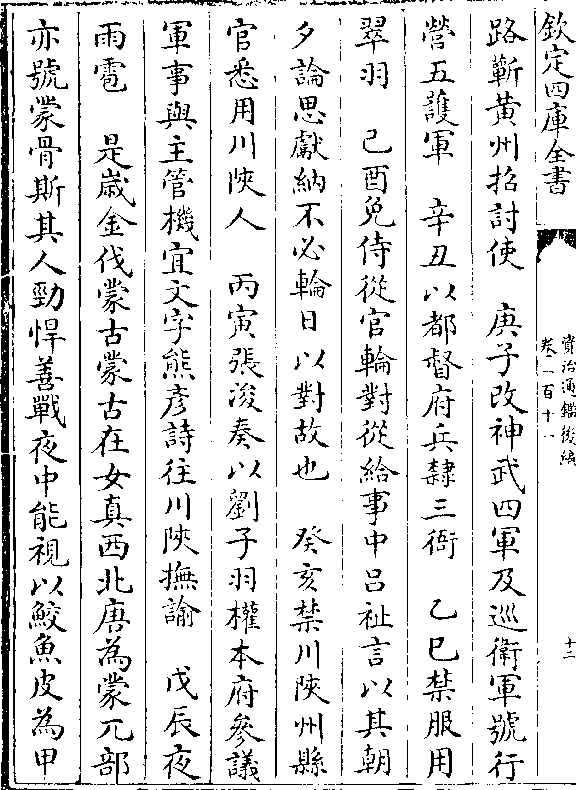 欽定四庫全書
資治通鑑後編
卷一百十一
十二
路蘄黄州招討使　庚子改神武四軍及巡衛軍號行
營五護軍　辛丑以都督府兵隸三衙　乙巳禁服用
翠羽　己酉免侍從官輪對從給事中吕祉言以其朝
夕論思獻納不必輪日以對故也　癸亥禁川陜州縣
官悉用川陜人　丙寅張浚奏以劉子羽權本府參議
軍事與主管機宜文字熊彦詩往川陜撫諭　戊辰夜
雨雹　是歳金伐蒙古蒙古在女真西北唐為蒙兀部
亦號蒙骨斯其人勁悍善戰夜中能視以鮫魚皮為甲